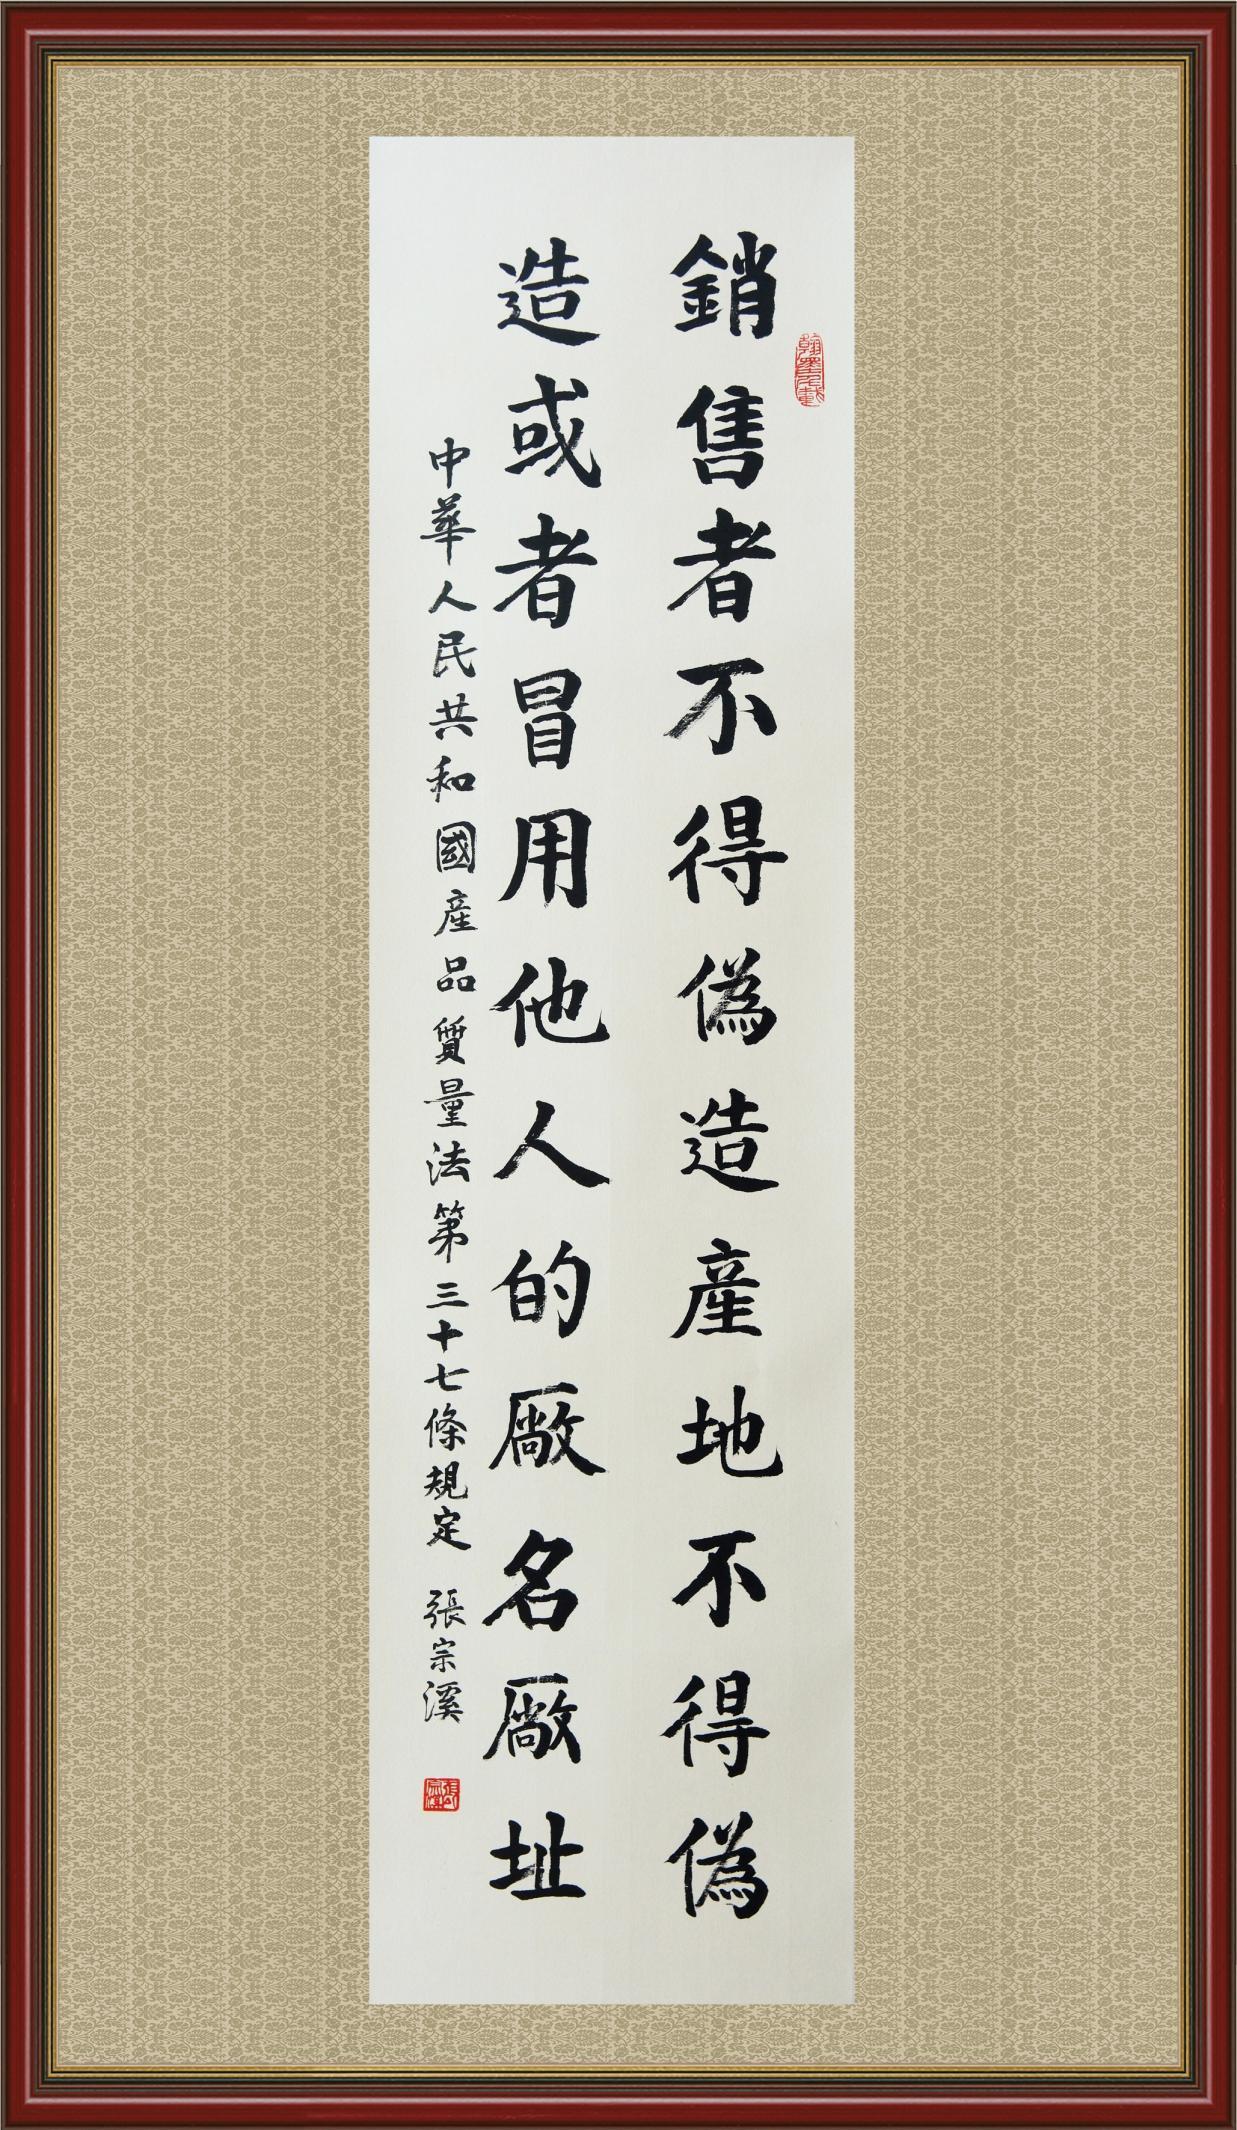 銷售者不得偽造產地不得偽
造或者冒用他人的廠名廠址
中華人民共和國產品質量法第三十七條規定 張宗溪